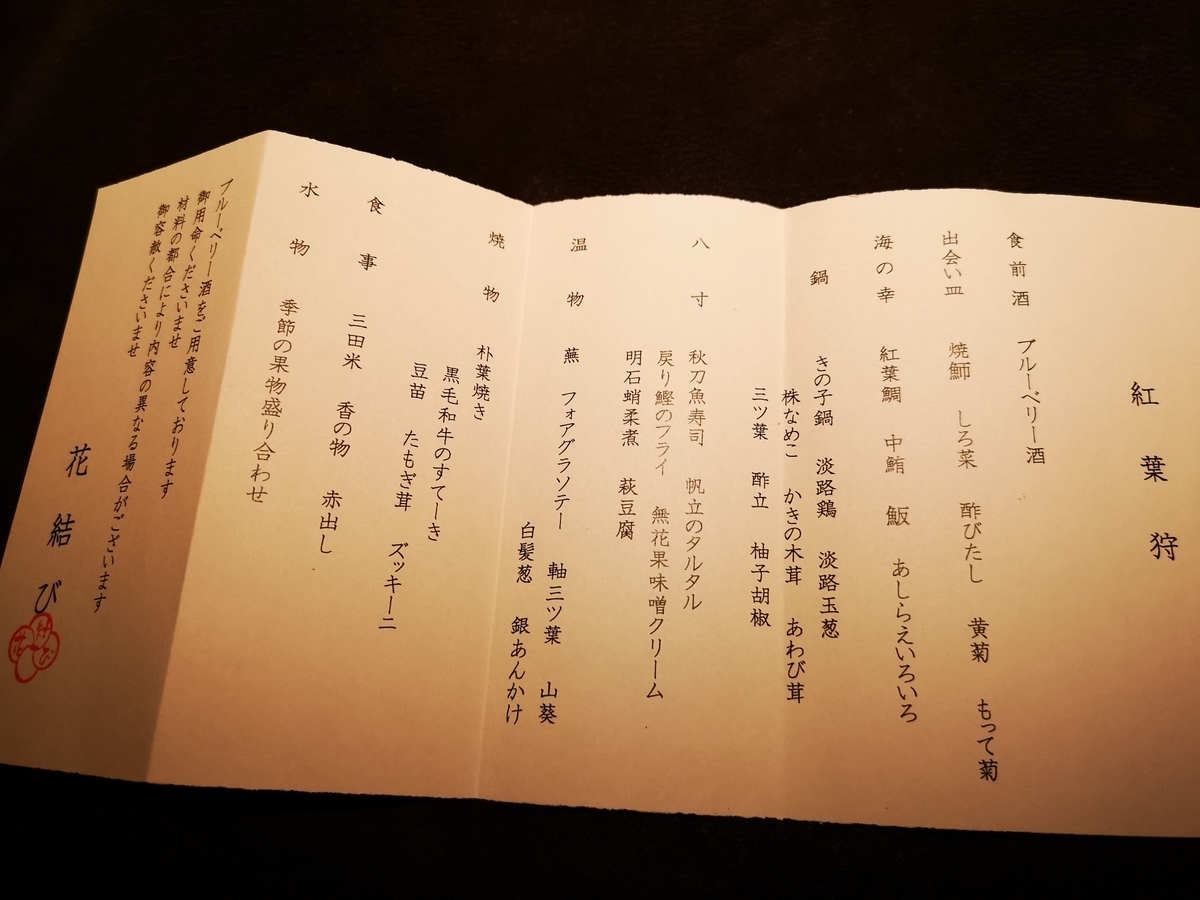 紅葉狩
食前酒 ブルーベリー酒
出会い皿 焼鰤 しろ菜 酢びたし 黄菊 もって菊
海の幸 紅葉鯛 中鮪 鰒 あしらえいろいろ
鍋 きの子鍋 淡路鶏 淡路玉葱
株なめこ かきの木茸 あわび茸
三ツ葉 酢立 柚子胡椒
八寸 秋刀魚寿司 帆立のタルタル
戻り鰹のフライ 無花果味噌クリーム
明石蛸柔煮 萩豆腐
温物 蕪 フォアグラソテー 軸三ツ葉 山葵
白髪葱 銀あんかけ
焼物 朴葉焼き
黒毛和牛のすてーき
豆苗 たもぎ茸 ズッキーニ
食事 三田米 香の物 赤出し
水物 季節の果物盛り合わせ
ブルーベリー酒をご用意しております
御用命くださいませ
材料の都合により内容の異なる場合がございます
御容赦くださいませ
花結び